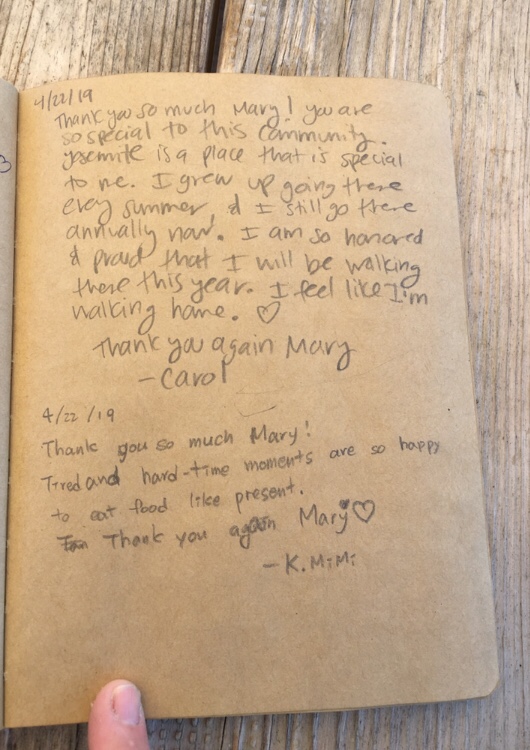 4/22/19
Thank you so much Mary! you are
so special to this community.
yosemite is a place that is special
to me. I grew up going there
every summer, & I still go there
annually now. I am so honored
& proud that I will be walking
there this year. I feel like I'm
walking home. ♡
Thank you again Mary
- Carol
4/22/19
Thank you so much Mary!
Tired and hard-time moments are so happy
to eat food like present.
Thank you again Mary♡
- K.MiMi
3